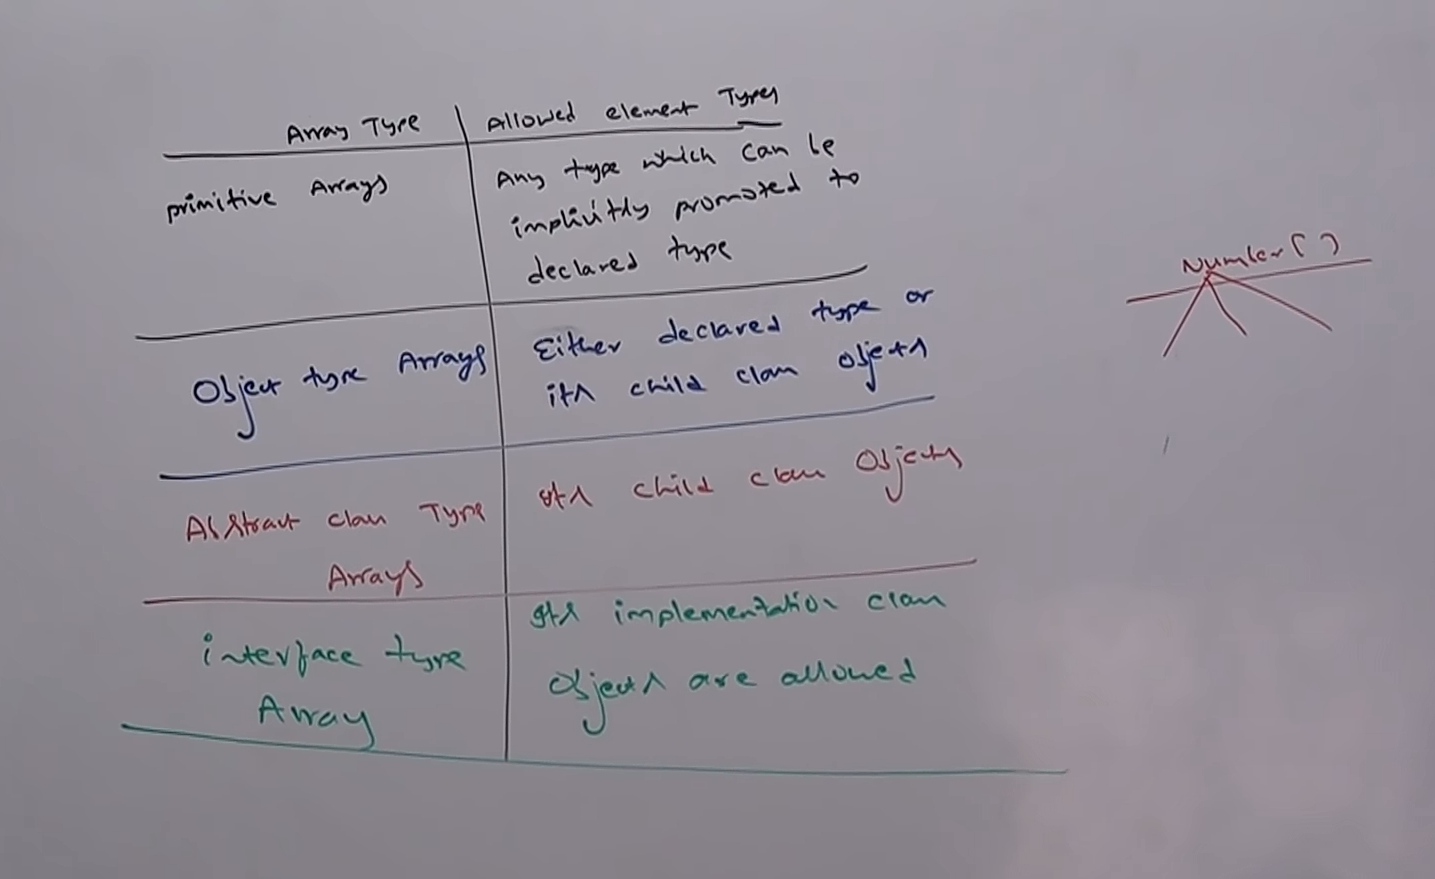 Array Type
Allowed element Types
primitive Arrays
Any type which can be
implicitly promoted to
declared type
Object type Arrays
Either declared type or
its child class objects
Abstract class Type
Arrays
Its child class Objects
interface type
Array
Its implementation class
Objects are allowed
Number[ ]